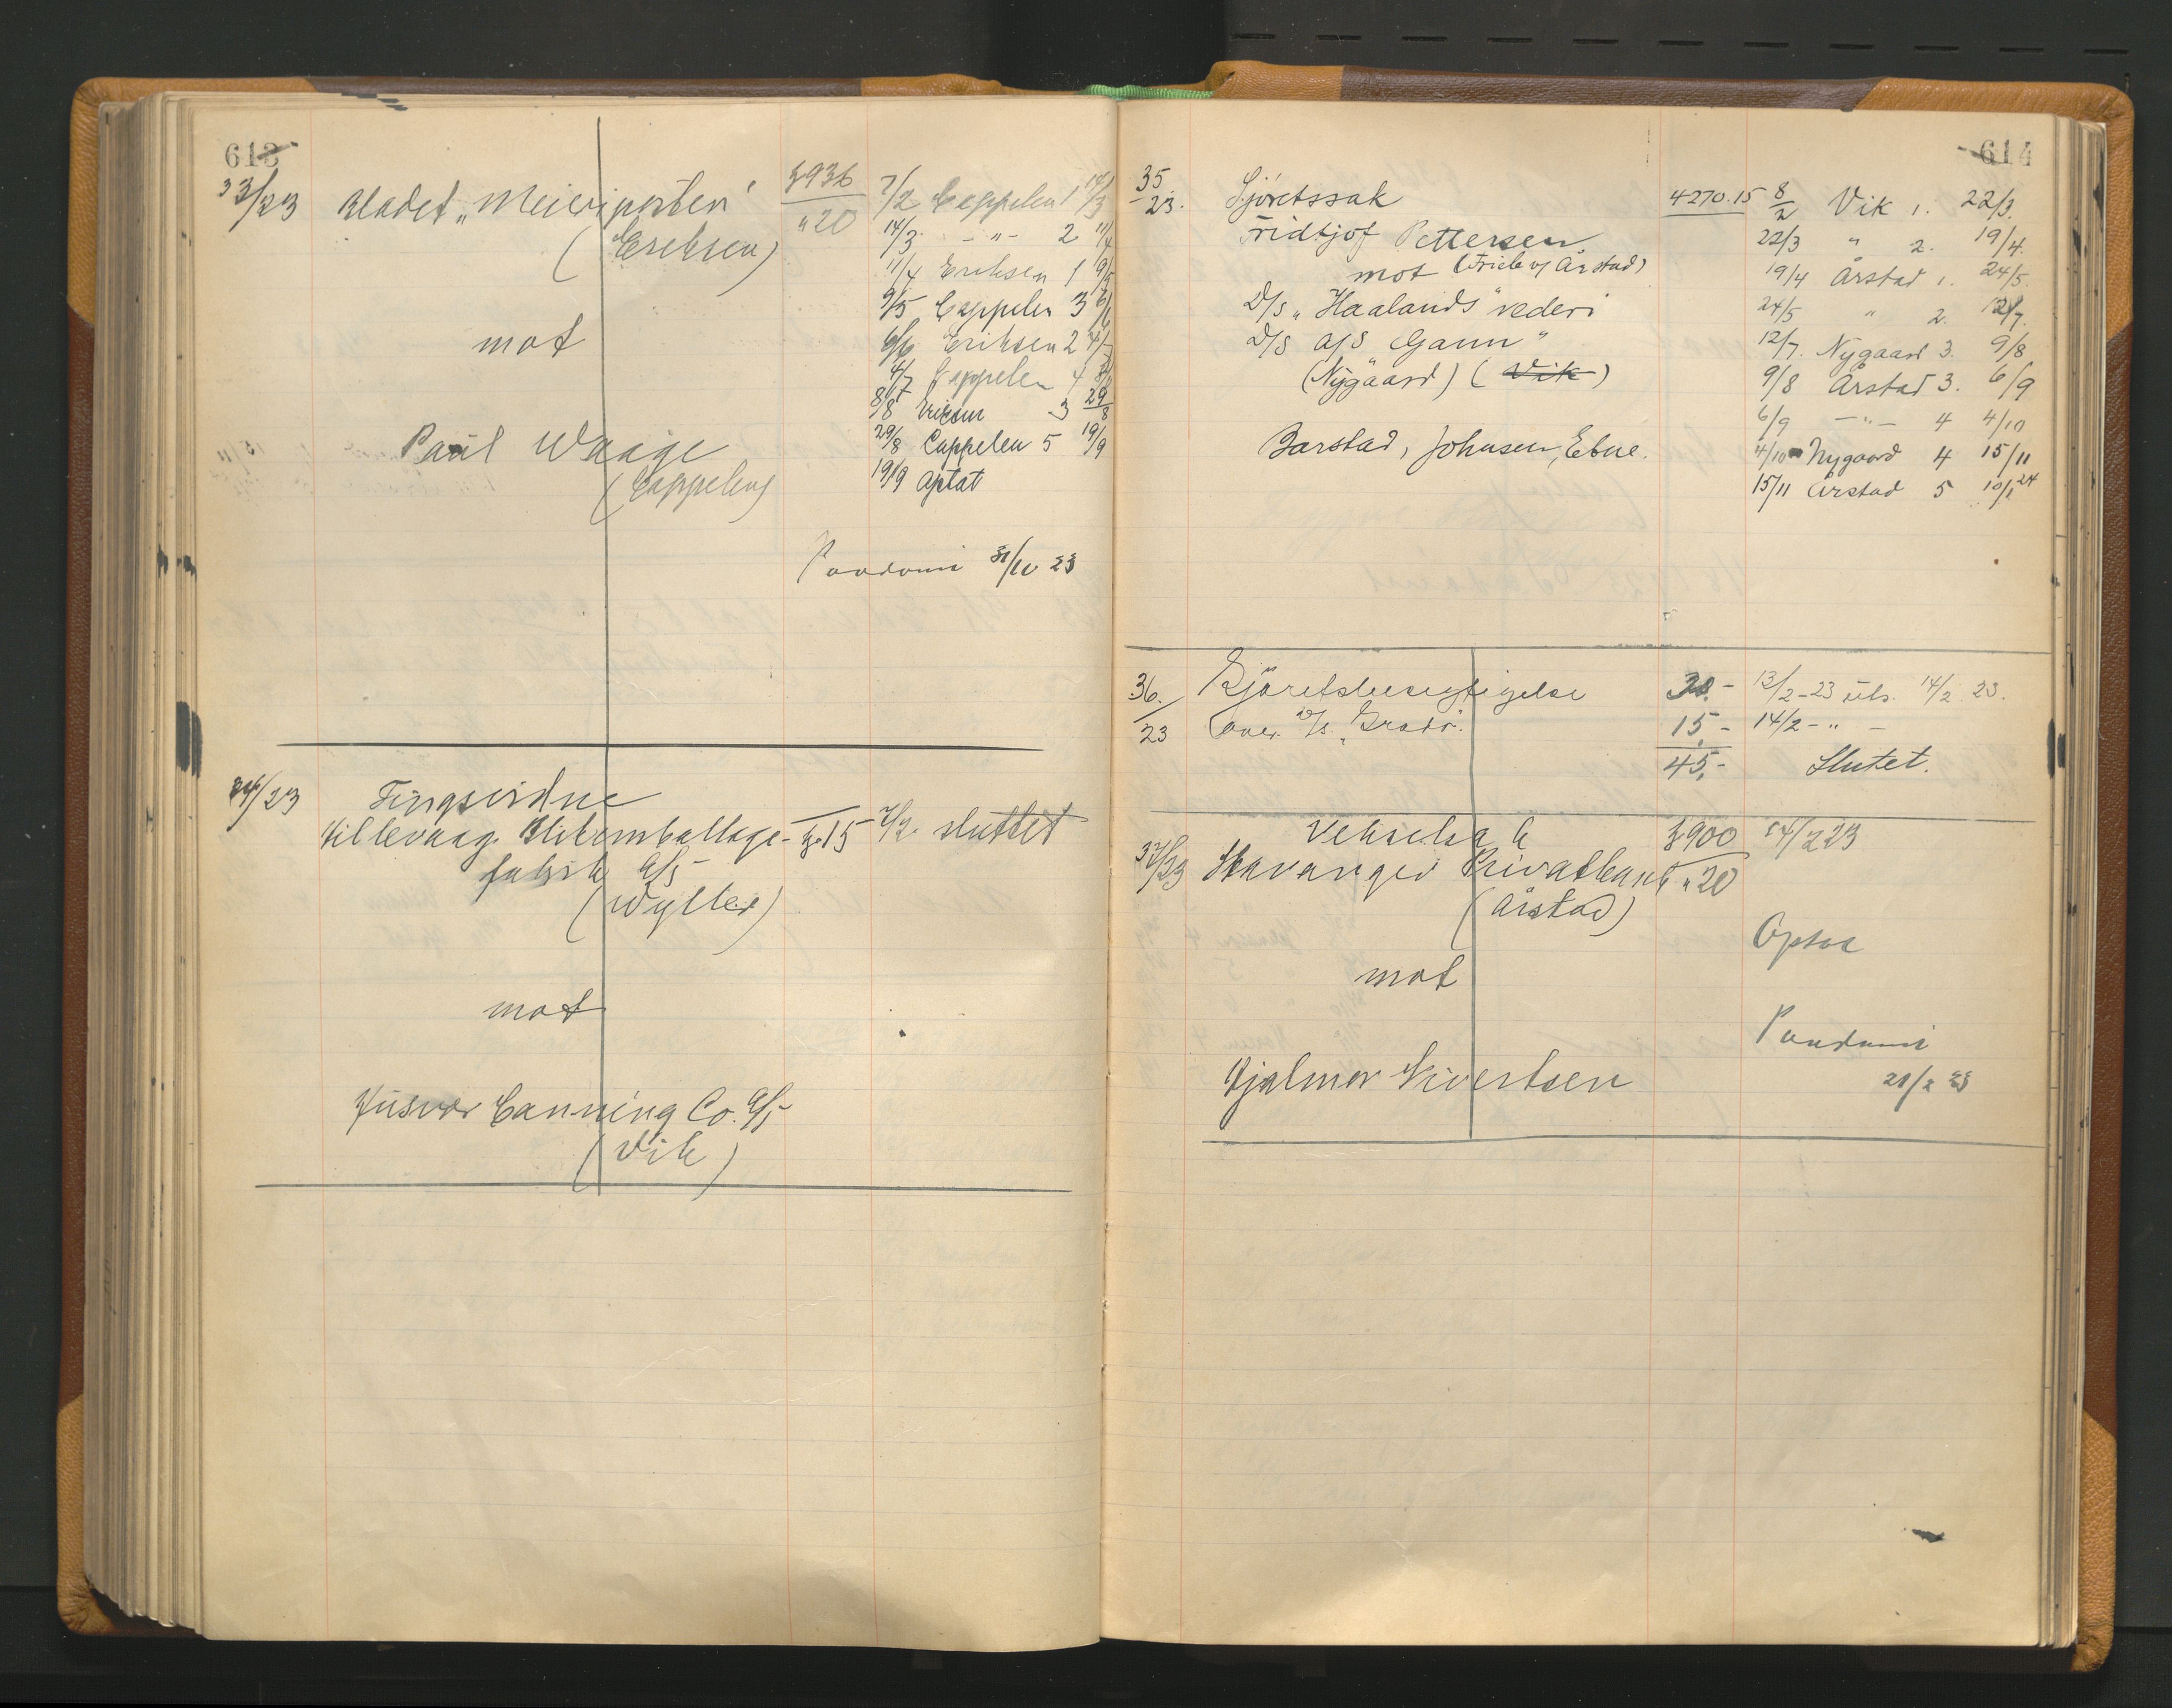 613
33/23 Bladet „Meieriposten" 3936 7/2 Cappelen 1 14/3
(Eriksen) "20 14/3 -"- 2 11/4
11/4 Eriksen 1 9/5
9/5 Cappelen 3 6/6
mot 6/6 Eriksen 2 4/7
4/7 Cappelen 4 8/8
8/8 Eriksen 3 29/8
Paul Waage 29/8 Cappelen 5 19/9
(Cappelen) 19/9 Optat
31/10 23
34/23 Tingsvidne
Hillevaag Blikemballage- 15 7/2 sluttet
fabrik A/S
(Wyller)
mot
Husvær Canning Co. A/S
(Vik)
614
35/23. Sjöretssak 4270.15 8/2 Vik 1. 22/3.
Fridtjof Pettersen 22/3 " 2. 19/4.
mot (Friele v/ Årstad) 19/4 Årstad 1. 24/5.
D/S „Haalands" rederi 24/5 " 2. 12/7.
D/S A/S Gann" 12/7. Nygaard 3. 9/8
(Nygaard) (Vik) 9/8 Årstad 3. 6/9
6/9 -"- 4 4/10
Barstad, Johnsen, Ebne. 4/10 Nygaard 4 15/11
15/11 Årstad 5 10/1 24
36./23 Sjöretsbesigtigelse 30.- 13/2-23 uts. 14/2 23.
over D/S. 15,- 14/2 - " -
45,- Slutet.
Vekselsak 3900 14/2 23
37/23 Stavanger Privatbank "20
(Årstad)
Optat
mot
Hjalmar Sivertsen 21/2 23